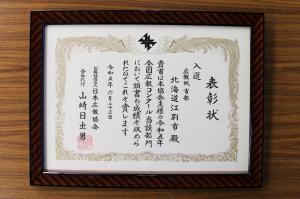 表彰状
入選
広報紙 市部
北海道江別市殿
貴首は本協会主催の令和五年
全国広報コンクール当該部門
において頭書の成績を収めら
れたのでこれを賞します
令和五年六月二十三日
公益社団法人日本広報協会
会長代行 山崎日出男